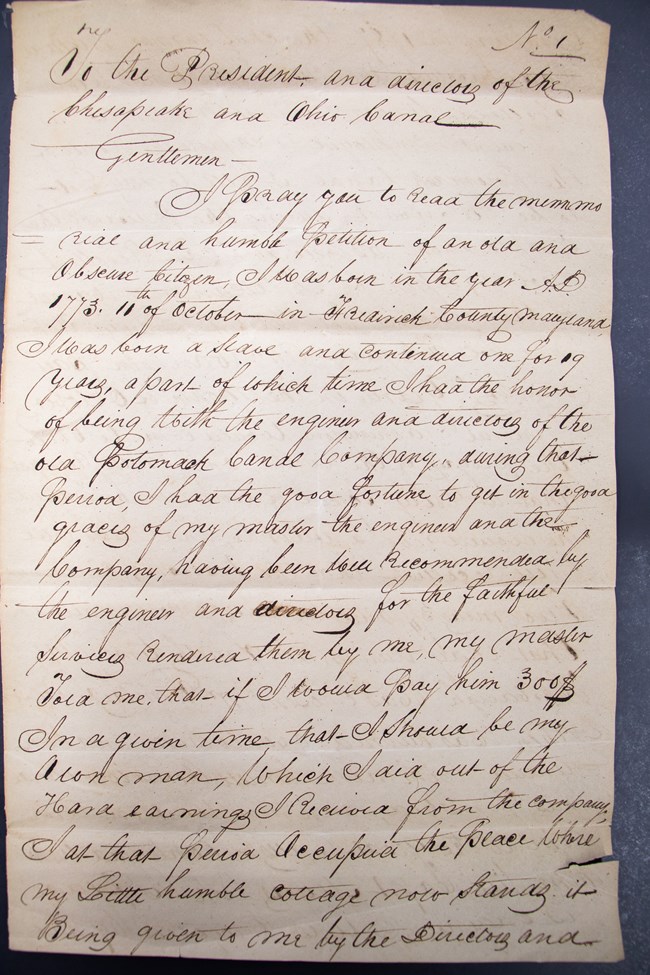 No. 1
To the President, and directors of the
Chesapeake and Ohio Canal
Gentlemen —
I Pray you to read the memmo
= rial and humble Petition of an old and
Obscure Citizen, I Was born in the year A.D
1773. 11th of October — in Fredirick County maryland,
I Was born a slave and continued one for 19
Years, a part of which time I had the honor
of being With the engineer and directors of the
old Potomack Canal Company, during that
Period, I had the good fortune to get in the good
graces of my master the engineer and the
Company, having been Well Recommended by
the engineer and directors for the faithful
Services Rendered them by me, my master
Told me, that if I would Pay him 300$
In a given time that I should be my
Own man, Which I did out of the
Hard earnings I Received from the company,
I at that Period Occupied the Place Where
my Little humble cottage now Stands it
Being given to me by the Directors and